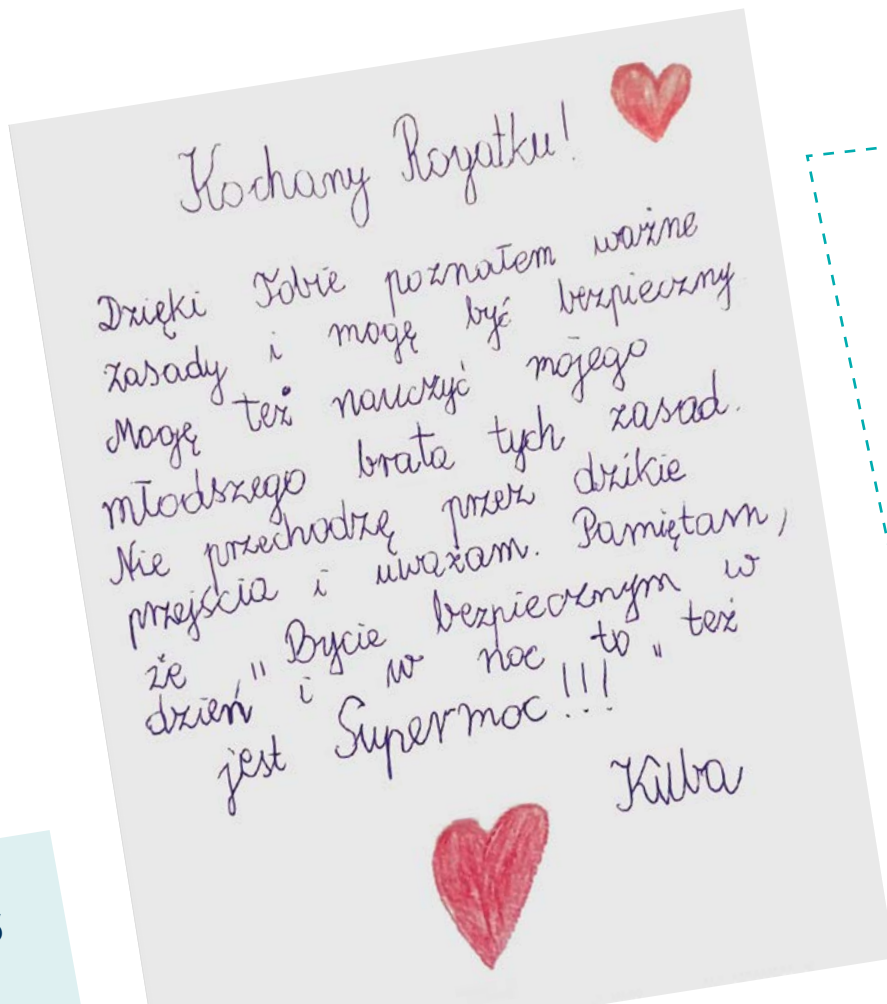 Kochany Rogatku!
Dzięki Tobie poznałem ważne
zasady i mogę być bezpieczny
Mogę też nauczyć mojego
młodszego brata tych zasad.
Nie przechodzę przez dzikie
przejścia i uważam. Pamiętam,
że ,"Bycie bezpiecznym w
dzień i w noc to" też
jest Supermoc!!!
Kuba